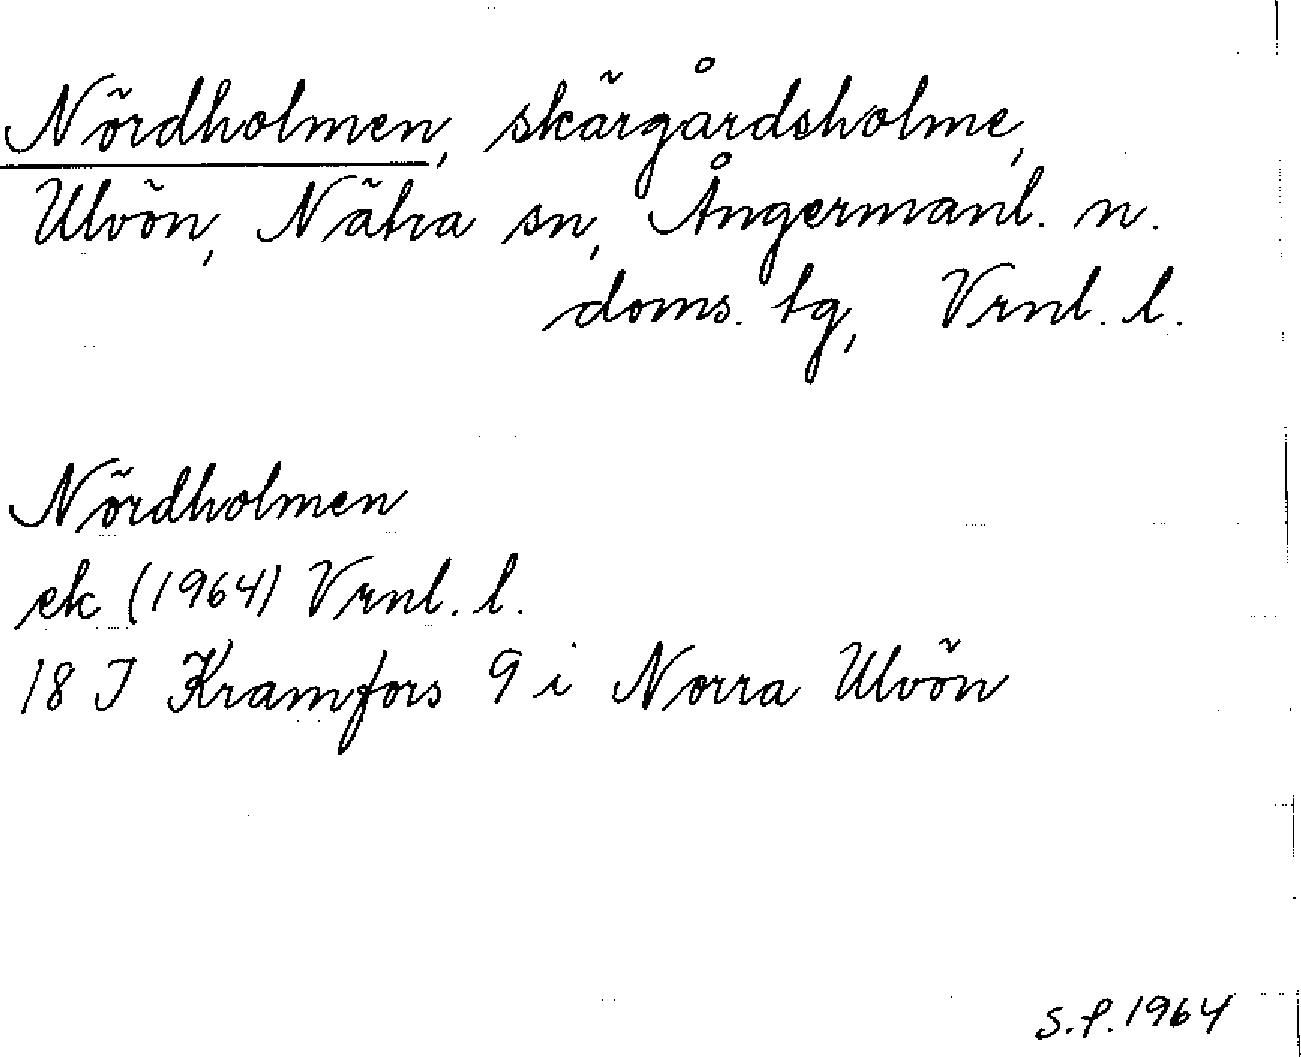 Nördholmen, skärgårdsholme,
Ulvön, Nätra sn, Ångermanl. n.
doms. tg, Vrnl. l.
Nördholmen
ek (1964) Vrnl. l.
18 I Kramfors 9 i Norra Ulvön
S.P. 1964